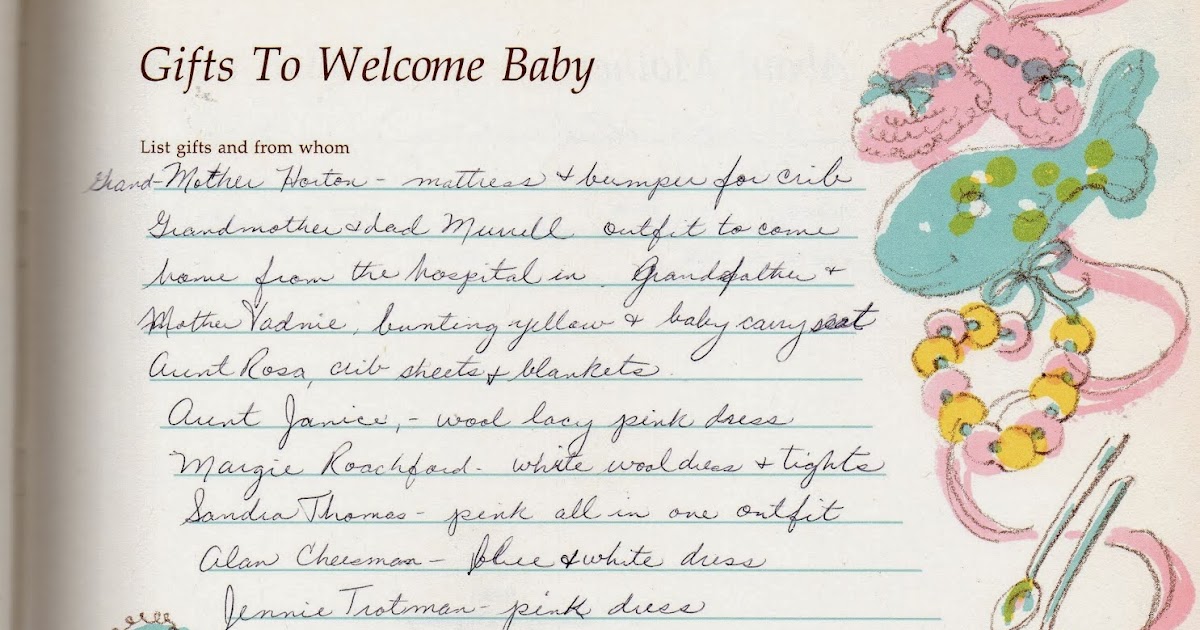 Gifts To Welcome Baby
List gifts and from whom
Grand-Mother Horton - mattress & bumper for crib
Grandmother & dad Murrell outfit to come
home from the hospital in. Grandfather &
Mother Vadnie, bunting yellow & baby carry seat
Aunt Rosa, crib sheets & blankets.
Aunt Janice, - wool lacy pink dress
Margie Roachford - white wool dress & tights
Sandra Thomas - pink all in one outfit
Alan Cheesman - Blue & white dress
Jennie Trotman - pink dress